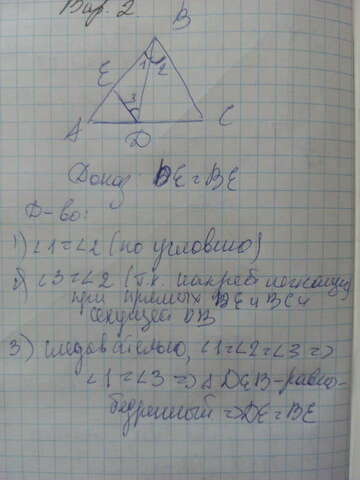 Вар. 2
B
E
1 2
3
A
D
C
Доказ DE=BE
Д-во:
1) ∠1=∠2 (по условию)
2) ∠3=∠2 (т.к. накрест лежащие
при прямых DE и BC и
секущей DB
3) следовательно, ∠1=∠2=∠3 =>
∠1=∠3 => Δ DEB - равно-
бедренный => DE=BE